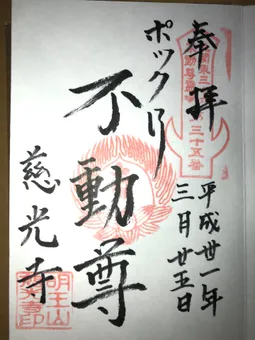 奉拝
平成廿一年
三月廿五日
ポックリ
不動尊
慈光寺
三十五番
明王山